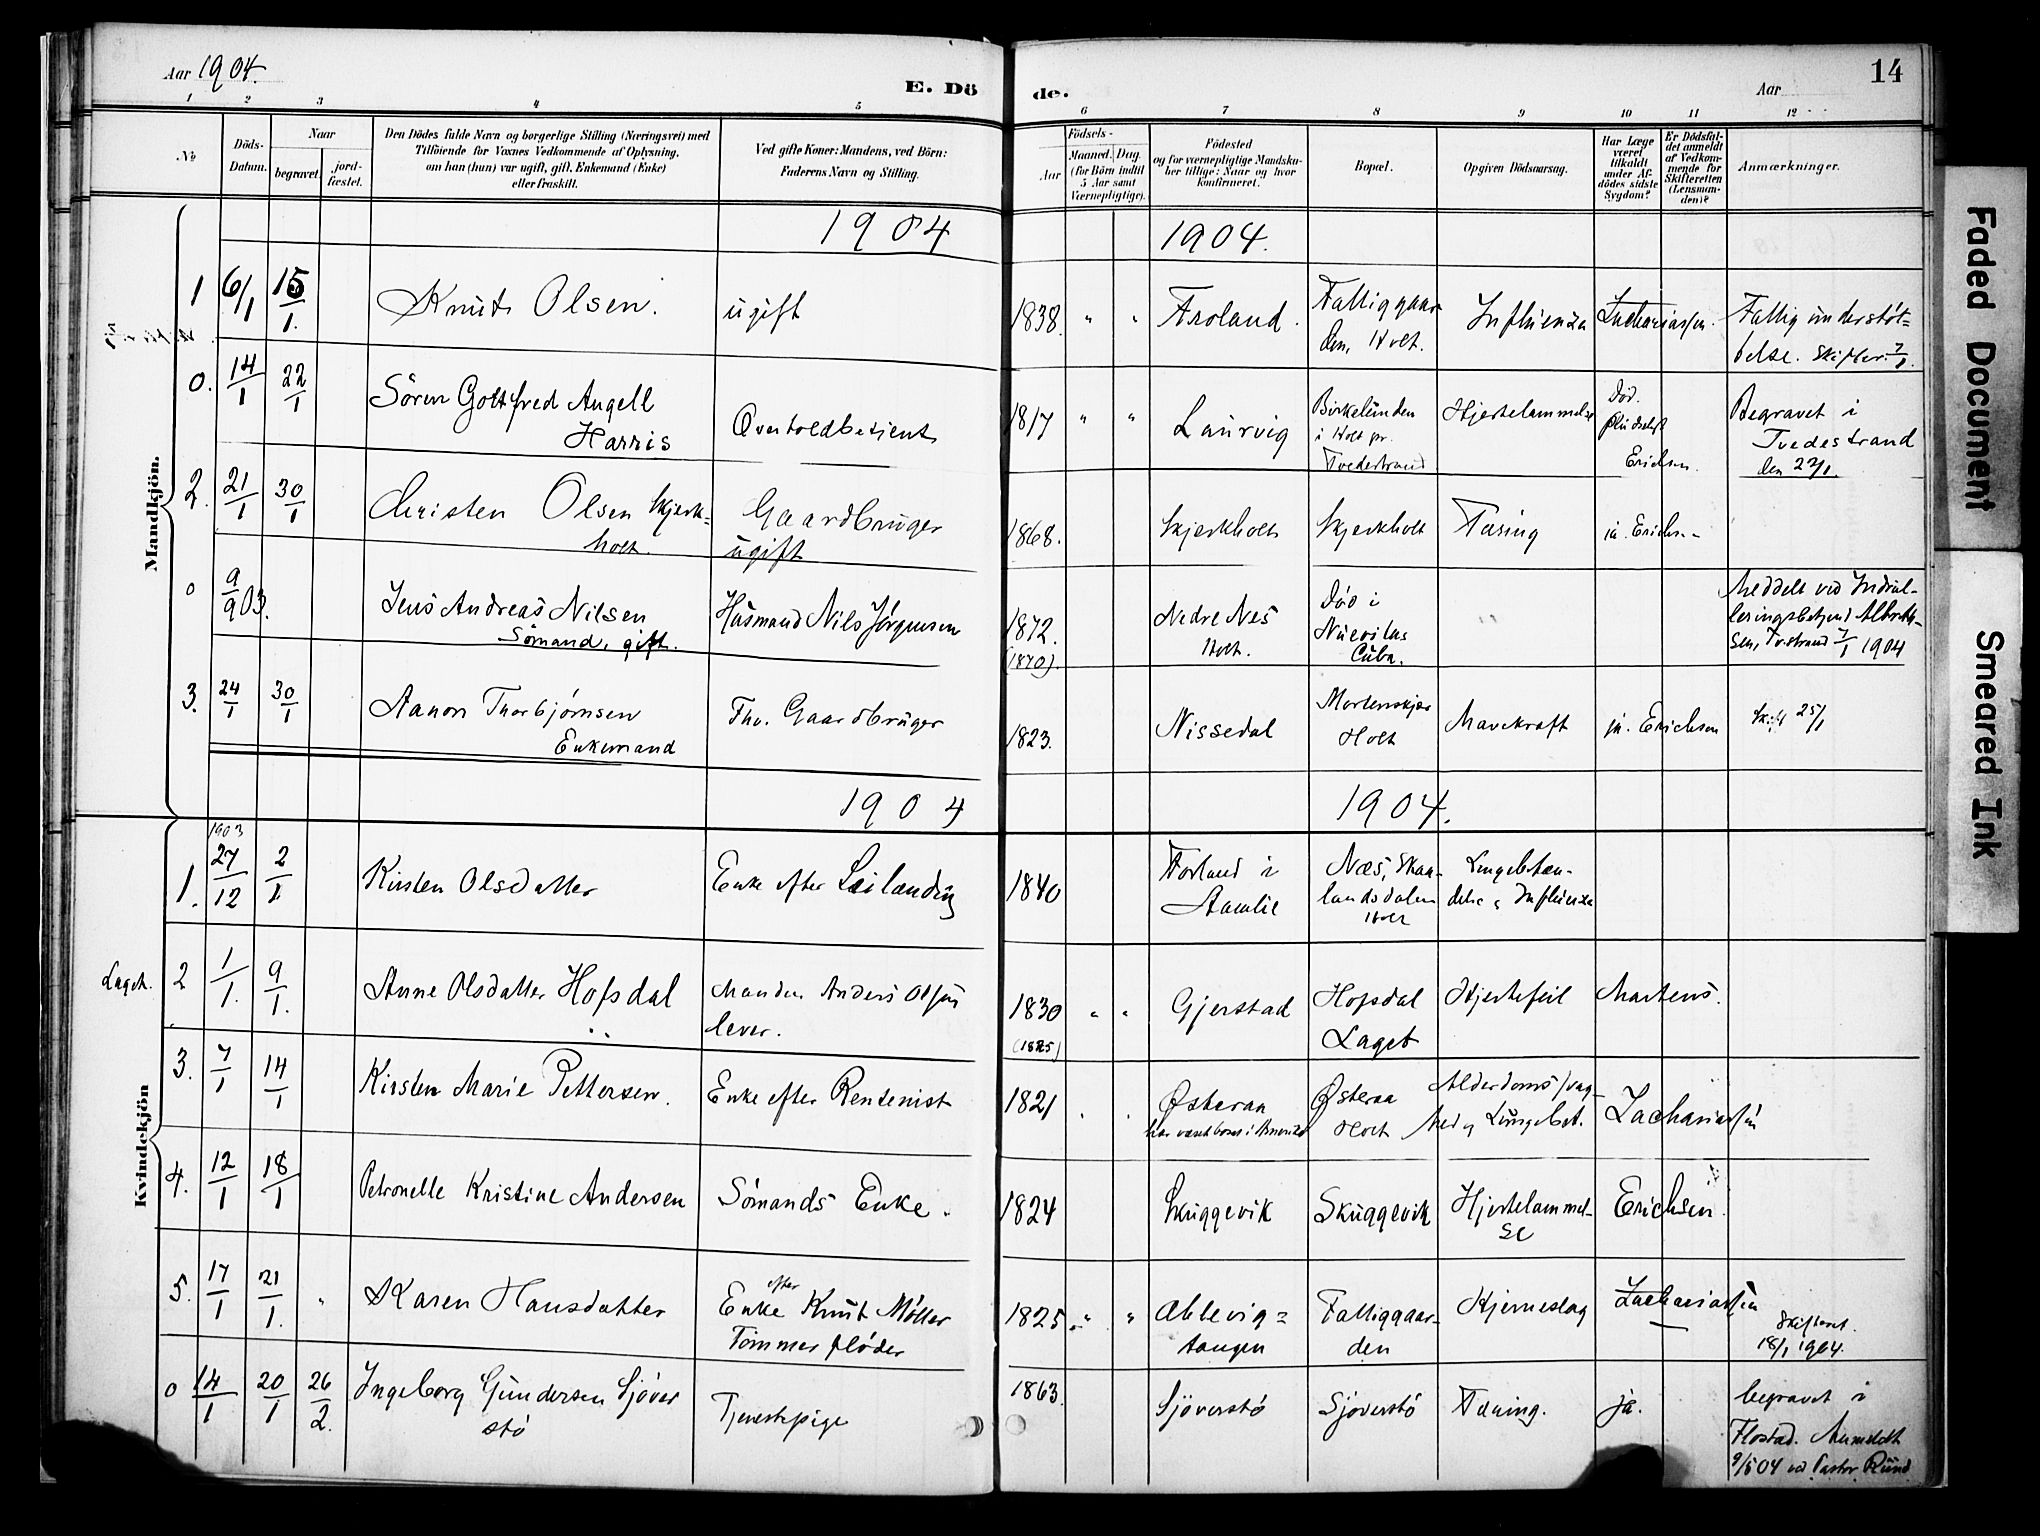 Aar 1904.
E. Dö
de.
Aar
14
1 2 3 4 5
6 7 8 9 10 11 12
№
Döds-
Datum.
Naar
begravet.
jord-
fæstet.
Den Dödes fulde Navn og borgerlige Stilling (Næringsvei) med
Tilföiende for Voxnes Vedkommende af Oplysning,
om han (hun) var ugift, gift, Enkemand (Enke)
eller fraskilt.
Ved gifte Koner: Mandens, ved Börn:
Faderens Navn og Stilling.
Födsels-
Aar
Maaned. Dag.
(for Börn indtil
5 Aar samt
Værnepligtige).
Födested
og for værnepligtige Mandsku-
ber tillige: Naar og hvor
konfirmeret.
Bopæl.
Opgiven Dödsaarsag.
Har Læge
været
tilkaldt
under Af-
dödes sidste
Sygdom?
Er Dödsfal-
det anmeldt
af Vedkom-
mende for
Skifteretten
(Lensman-
den)?
Anmærkninger.
Mandkjön.
1904
1904.
1 6/1 15/1. Knut Olsen. ugift
1838. " " Froland. Fattiggaar
den, Holt. Influenza Zachariassen. Fattigunderstøt=
telse. Skifter. 7/1.
0. 14/1 22/1 Sören Gottfred Angell
Harris Overtoldbetjent
1817 " " Laurvig Birkelunden
i Holt pr.
Tvedestrand Hjertelammelse Död.
pludseligt
Erichsen. Begravet i
Tvedestrand
den 22/1.
2. 21/1 30/1 Christen Olsen Skjerk=
holt. Gaardbruger
ugift
1868. Skjerkholt Skjerkholt Tæring ja. Erichsen
0 9/9 03. Jens Andreas Nilsen
Sömand, gift. Husmand Nils Jörgensen
1872.
(1870). Nedre Nes
Holt. Död i
Nuevitas
Cuba. Meddelt ved Indrul-
leringsbetjent Albrekt-
sen, Tvestrand 7/1 1904
3. 24/1 30/1 Aanon Thorbjörnsen
Enkemand Fhv. Gaardbruger
1823. Nissedal Mortenskjær
Holt Mavekræft ja. Erichsen Skift 25/1
1904
1904.
Kvindekjön
1. 1903 27/12 2/1 Kirsten Olsdatter Enke efter
1840 Forland i
Aamlie Næs, Skaa-
landsdalen
Holt Lungebetæn-
delse & Influenza
Laget. 2 1/1. 9/1. Anne Olsdatter Hofsdal Manden Anders Olsen
lever.
1830
(1825) " " Gjerstad Hofsdal
Laget Hjertefeil Martens.
3. 7/1 14/1 Kirsten Marie Pettersen. Enke efter Rentenist
1821 Østeraa
har været boset i Amerika Østeraa
Holt Alderdomssvag-
hed & Lungebet. Zachariassen
4. 12/1 18/1 Petronelle Kristine Andersen Sömands Enke.
1824 Skuggevik Skuggevik Hjertelammel-
se Erichsen.
5. 17/1 21/1. " Karen Hansdatter efter
Enke Knut Möller
Tömmerflöder
1825 " " Ahlevig=
tangen Fattiggaar-
den Hjerneslag Zachariassen Skifteret.
18/1 1904.
0 14/1 20/1 26/2. Ingeborg Gundersen Sjöver
stö Tjenestepige
1863. Sjöverstö Sjöverstö Tæring. ja. begravet i
Flostad. Anmeldt
9/5 04 ved Pastor Rund.
Faded Document
Smeared Ink